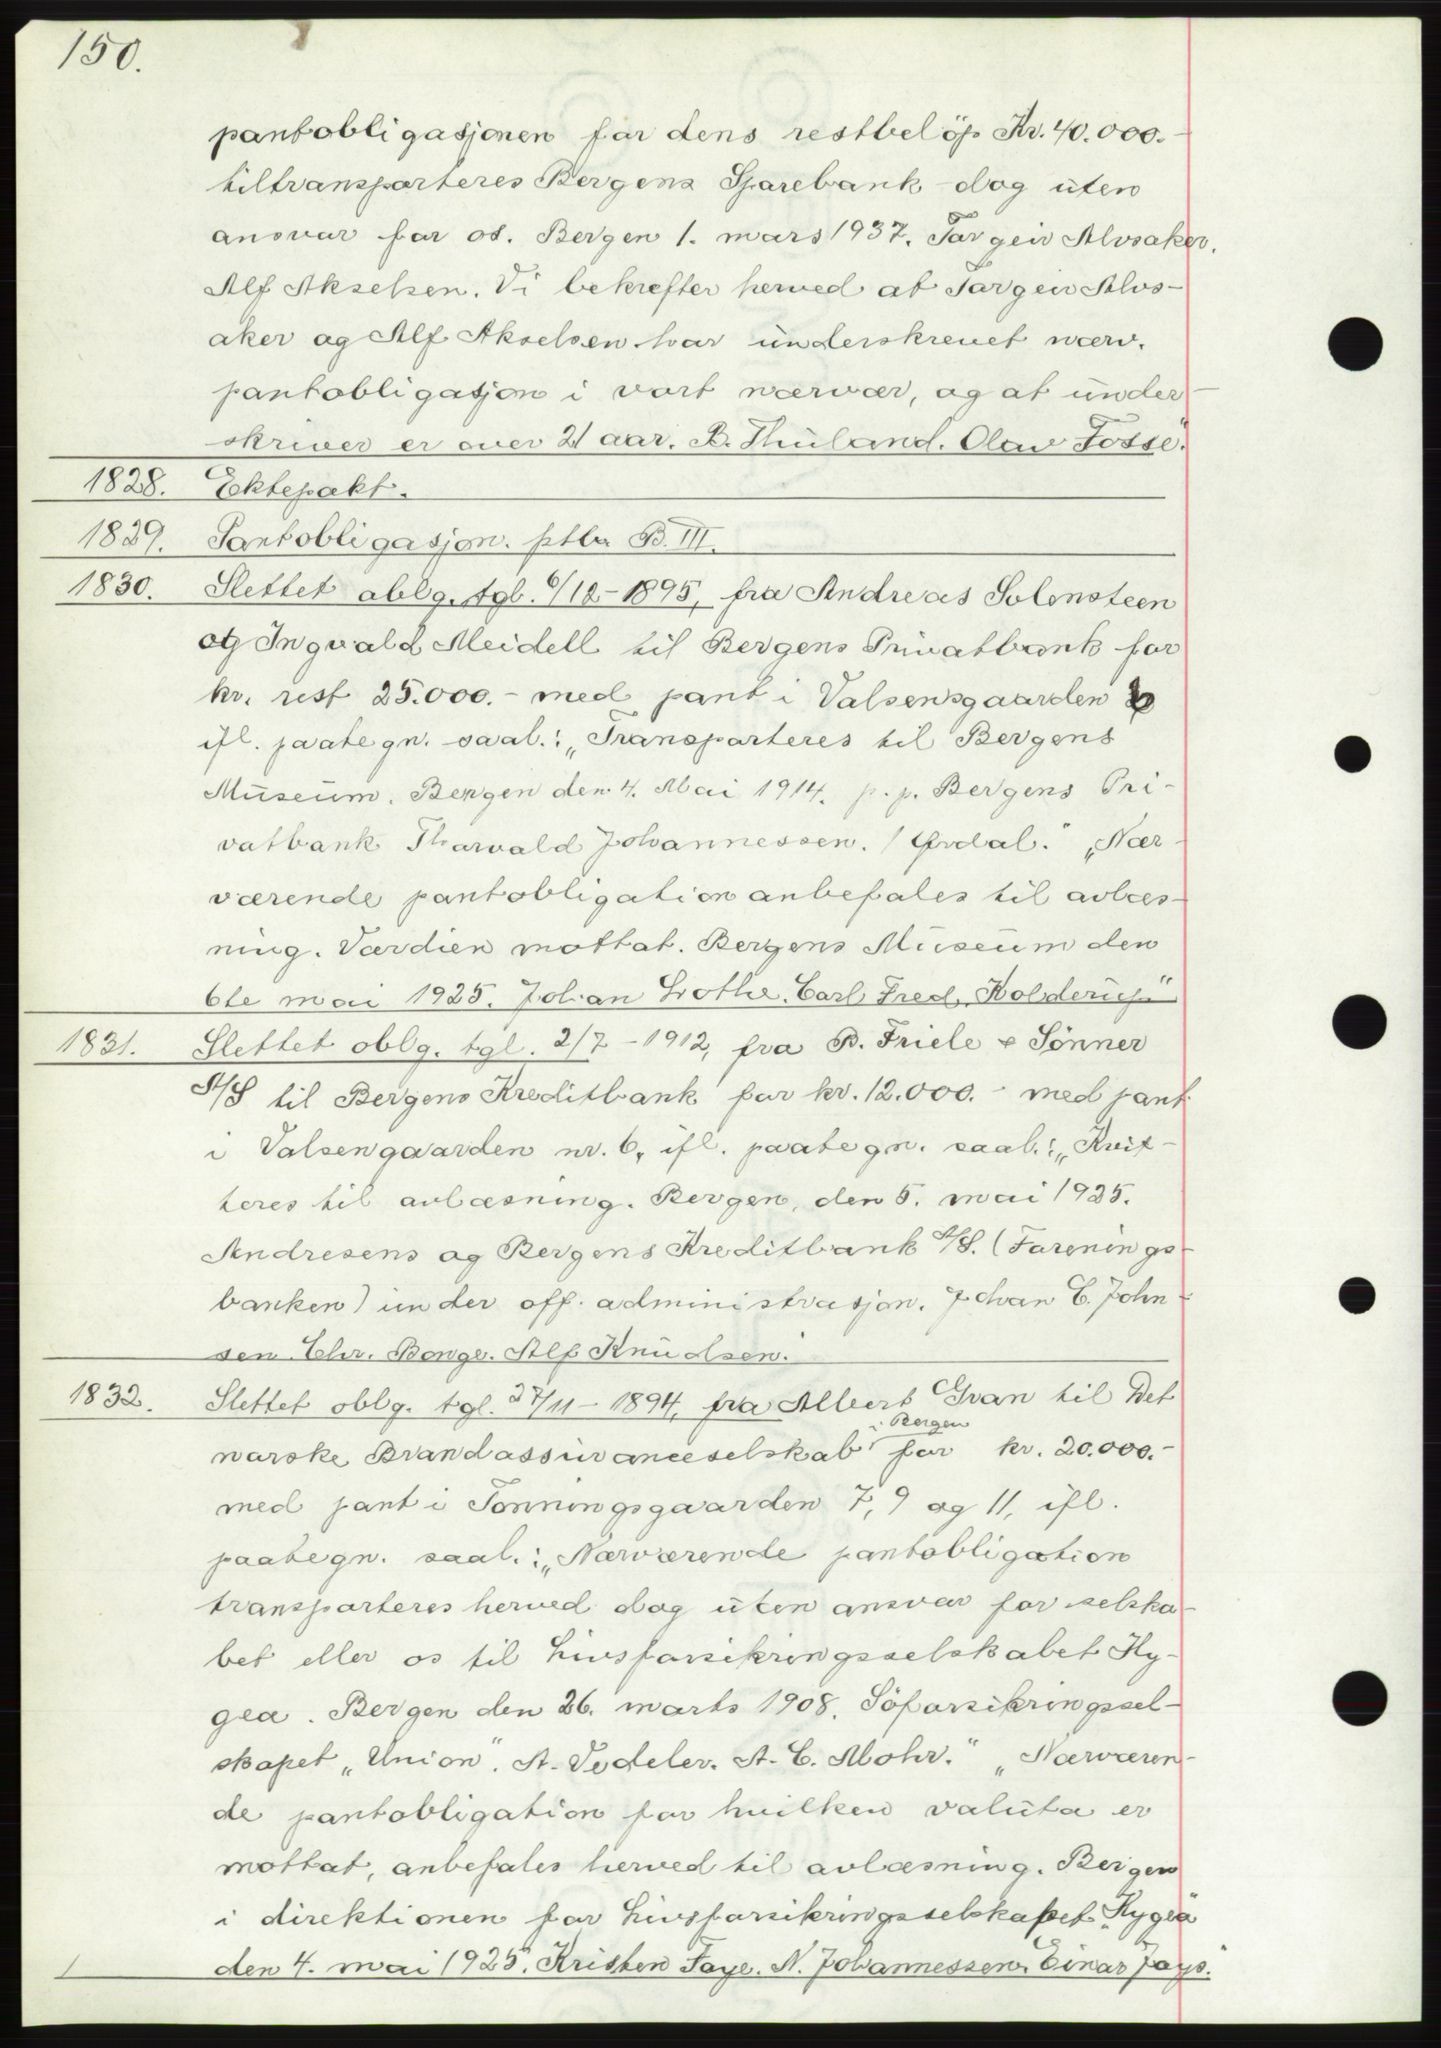 150.
pantobligasjonen for dens restbeløp Kr. 40.000.-
tiltransporteres Bergens Sparebank dog uten
ansvar for os. Bergen 1. mars 1937. Torgeir Alvsaker.
Alf Akselsen. Vi bekrefter herved at Torgeir Alvs-
aker og Alf Akselsen har underskrevet nærv.
pantobligasjon i vort nærvær, og at under-
skriver er over 21 aar. B. Thuland. Olav Fosse."
1828. Ektepakt.
1829. Pantobligasjon. ptb. B. III.
1830. Slettet oblg. tgl. 6/12-1895, fra Andreas Solensteen
og Ingvald Meidell til Bergens Privatbank for
kr. rest 25.000.- med pant i Valsensgaarden
ifl. paategn. saal.: „Transporteres til Bergens
Museum. Bergen den 4. Mai 1914. p. p. Bergens Pri-
vatbank Thorvald Johannessen. / Ørdal." „Nær-
værende pantobligation anbefales til avlæs-
ning. Værdien mottat. Bergens Museum den
6te mai 1925. Johan Lothe. Carl Fred. Kolderup"
1831. Slettet oblg. tgl. 2/7-1912, fra B. Friele & Sönner
A/S til Bergens Kreditbank for kr. 12.000.- med pant
i Valsengaarden nr. 6, ifl. paategn. saal.: „Kvit-
teres til avlæsning. Bergen, den 5. mai 1925.
Andresens og Bergens Kreditbank A/S. (Forenings-
banken) under off. administrasjon. Johan C. John-
sen. Chr. Bonge. Alf Knudsen."
1832. Slettet oblg. tgl. 27/11-1894, fra Albert Gran til Det
norske Brandassuranceselskab i Bergen for kr. 20.000.-
med pant i Tonningsgaarden 7, 9 og 11, ifl.
paategn. saal.: „Nærværende pantobligation
transporteres herved dog uten ansvar for selska-
bet eller os til Livsforsikringsselskabet Hy-
gea. Bergen den 26. marts 1908. Söforsikringssel-
skapet „Union". A. Vedeler. A. C. Mohr." „Nærværen-
de pantobligation for hvilken valuta er
mottat, anbefales herved til avlæsning. Bergen
i direktionen for Livsforsikringsselskapet „Hygea"
den 4. mai 1925. Kristen Faye. N. Johannessen. Einar Jays."